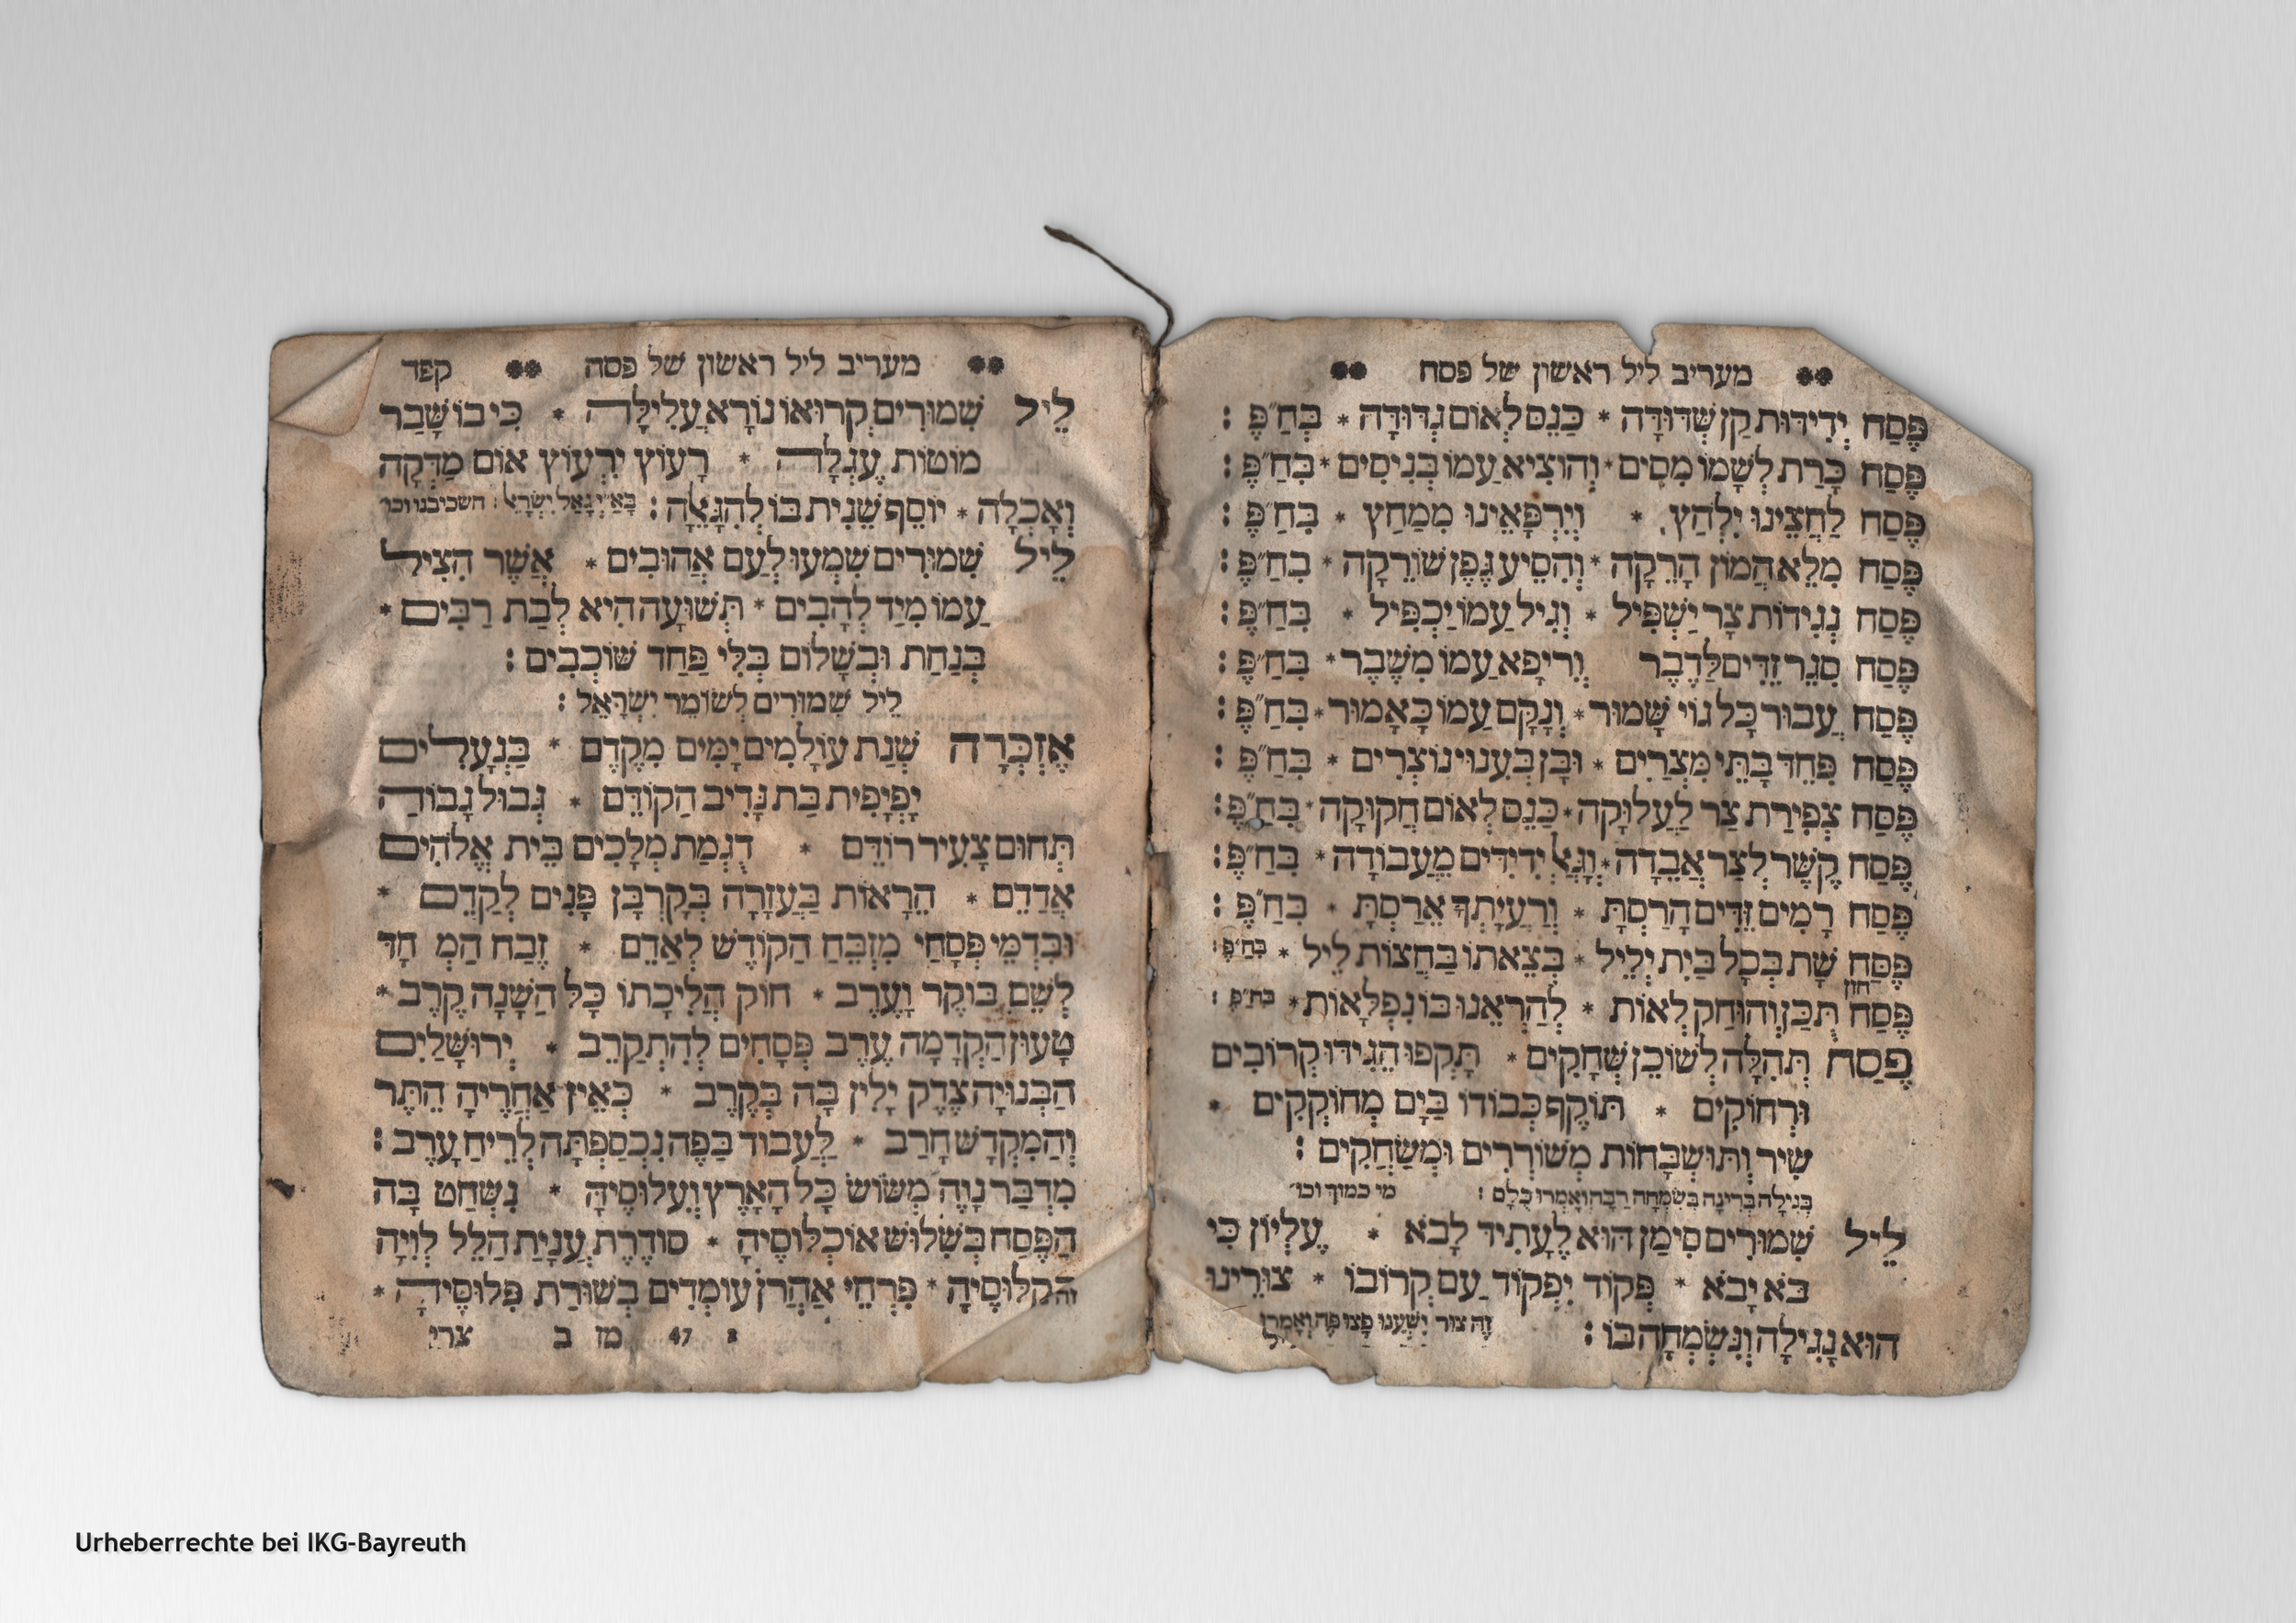 מעריב ליל ראשון של פסח
פֶּסַח יְדִידוּת קַן שְׁדוּדָה * כַּנֵּס לְאוֹם נְדוּדָה * בְּחַ״פֶּ :
פֶּסַח כָּרַת לְשָׂמוֹ מִסִּים * וְהוֹצִיא עַמּוֹ בְּנִיסִים * בְּחַ״פֶּ :
פֶּסַח לַחֲצֵינוּ יִלְחַץ * וְיִרְפָּאֵינוּ מִמַּחַץ * בְּחַ״פֶּ :
פֶּסַח מִלֵּא הֲמוֹן הָרֵקָה * וְהִסִּיעַ גֶּפֶן שׂוֹרֵקָה * בְּחַ״פֶּ :
פֶּסַח נְגִידוֹת צָר יַשְׁפִּיל * וְגִיל עַמּוֹ יַכְפִּיל * בְּחַ״פֶּ :
פֶּסַח סִגֵּר זֵדִים לַדֶּבֶר וְרִיפָּא עַמּוֹ מִשֶּׁבֶר * בְּחַ״פֶּ :
פֶּסַח עֲבוּר כָּל גּוֹי שָׁמוּר * וְנָקָם עַמּוֹ כָּאָמוּר * בְּחַ״פֶּ :
פֶּסַח פִּחֵד בָּתֵּי מִצְרַיִם * וּבָן בְּעִנּוּי נוֹצְרִים * בְּחַ״פֶּ :
פֶּסַח צְפִירַת צַר לַעֲלוּקָה * כַּנֵּס לְאוֹם חֲקוּקָה * בְּחַ״פֶּ :
פֶּסַח קֶשֶׁר לְצַר אֲבֵדָה * וְגָאַל יְדִידִים מֵעֲבוֹדָה * בְּחַ״פֶּ :
פֶּסַח רָמִים זֵדִים הָרַסְתָּ * וְרַעְיָתְךָ אֵרַסְתָּ * בְּחַ״פֶּ :
פֶּסַח שָׁת בְּכָל בַּיִת יְלֵיל * בְּצֵאתוֹ בַּחֲצוֹת לֵיל * בְּחַ״פֶּ :
פֶּסַח תִּכֵּן וְהוּחַק לְאוֹת * לְהַרְאֵנוּ בוֹ נִפְלָאוֹת * בח״פ :
פֶּסַח תְּהִלָּה לְשׁוֹכֵן שְׁחָקִים * תָּקְפּוֹ הֵגִידוּ קְרוֹבִים
וּרְחוֹקִים * תּוֹקֶף כְּבוֹדוֹ בַּיָּם מְחוֹקְקִים *
שִׁיר וְתוּשְׁבָּחוֹת מְשׁוֹרְרִים וּמְשַׂחֲקִים :
בְּגִילָה בְּרִינָה בְּשִׂמְחָה רַבָּה וְאָמְרוּ כֻלָּם : מי כמוך וכו׳
לֵיל שִׁמּוּרִים סִימָן הוּא לֶעָתִיד לָבֹא * עֶלְיוֹן כִּי
בֹא יָבֹא * פְּקוֹד יִפְקוֹד עַם קְרוֹבוֹ * צוּרֵינוּ
הוּא נָגִילָה וְנִשְׂמְחָה בּוֹ : זֶה צוּר יִשְׁעֵנוּ פָּצוּ פֶה וְאָמְרוּ
מעריב ליל ראשון של פסח קפד
לֵיל שִׁמּוּרִים קְרָאוֹ נוֹרָא עֲלִילָה * כִּי בוֹ שָׁבַר
מוֹטוֹת עֶגְלָה * רָעוֹץ יִרְעוֹץ אוֹם מַדְּקָה
וְאָכְלָה * יוֹסֵף שֵׁנִית בּוֹ לְהִגָּאֵלָה : בָּאַ״י גָּאַל יִשְׂרָאֵל : השכיבנו וכו׳
לֵיל שִׁמּוּרִים שִׁמְעוּ לְעַם אֲהוּבִים * אֲשֶׁר הִצִּיל
עַמּוֹ מִיַּד לְהָבִים * תְּשׁוּעָה הִיא לְבַת רַבִּים *
בְּנַחַת וּבְשָׁלוֹם בְּלִי פַחַד שׁוֹכְבִים :
לֵיל שִׁמּוּרִים לְשׁוֹמֵר יִשְׂרָאֵל :
אֶזְכְּרָה שְׁנַת עוֹלָמִים יָמִים מִקֶּדֶם * בַּנְּעָלִים
יָפְיָפִית בַּת נָדִיב הַקּוֹדֵם * גְּבוּל גְּבוֹרָה
תְּחוּם צָעִיר רוֹדֵם * דֻּגְמַת מְלָכִים בֵּית אֱלֹהִים
אֲדַדֵּם * הֵרָאוֹת בַּעֲזָרָה בְּקָרְבַּן פָּנִים לְקַדֵּם *
וּבִדְמֵי פְּסָחַי מִזְבַּח הַקּוֹדֶשׁ לְאַדֵּם * זֶבַח הַמְ חָד
לְשֵׁם בּוֹקֶר וָעֶרֶב * חוֹק הֲלִיכָתוֹ כָּל הַשָּׁנָה קָרֵב *
טָעוּן הַקְדָּמָה עֶרֶב פְּסָחִים לְהִתְקָרֵב * יְרוּשָׁלַיִם
הַבְּנוּיָה צֶדֶק יָלִין בָּהּ בְּקֶרֶב * כְּאֵין אַחֲרֶיהָ הֵתֵּר
וְהַמִּקְדָּשׁ חָרַב * לַעֲבוֹד בַּפֶּה נִכְסַפְתָּה לְרֵיחַ עָרֵב :
מִדְבַּר נָוֶה מְשׂוֹשׂ כָּל הָאָרֶץ וַעֲלוּסֶיהָ * נִשְׁחַט בָּהּ
הַפֶּסַח בְּשָׁלוֹשׁ אוֹכְלוּסֶיהָ * סוֹדֶרֶת עֲנִיַּת הַלֵּל לְוִיָּה
הַקְלוּסֶיהָ * פִּרְחֵי אַהֲרֹן עוֹמְדִים בְּשׁוּרַת פִּלּוּסֶיהָ *
2 47 מז ב צרי
Urheberrechte bei IKG-Bayreuth